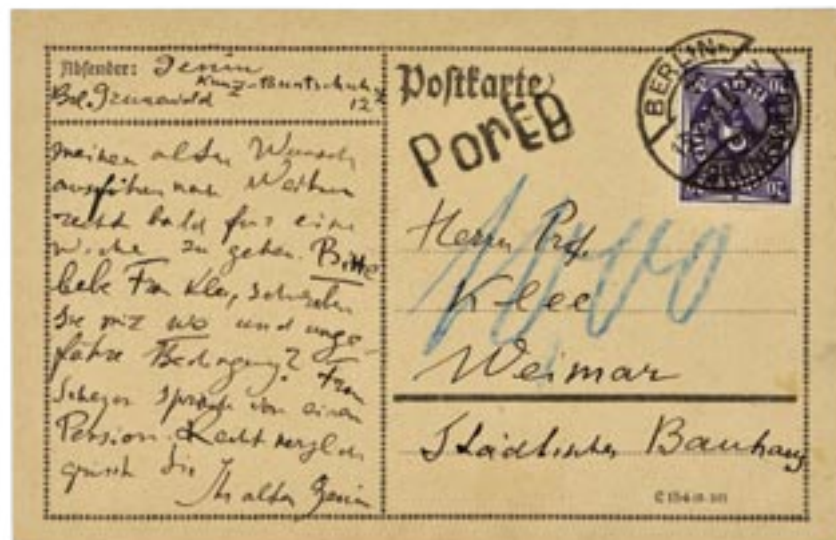 Absender: Jenin
Kunz-Buntschuhstr
Bln. Grunewald 12
meinen alten Wunsch
ausführen nach Weimar
recht bald für eine
Woche zu gehen. Bitte
liebe Frau Klee, schreiben
Sie mir wo und unge-
fähre Bedingung? Frau
Scheyer sprach von einer
Pension. Recht
grüsst Sie
Ihr alter Jenin
Postkarte
Porto
BERLIN
GRUNEWALD
20
1000
Herrn Prof.
Klee
Weimar
Städtisches Bauhaus
C 154